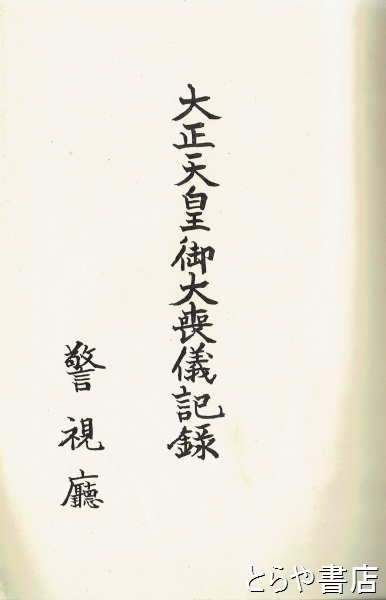 大正天皇御大喪儀記錄
警視廳
とらや書店